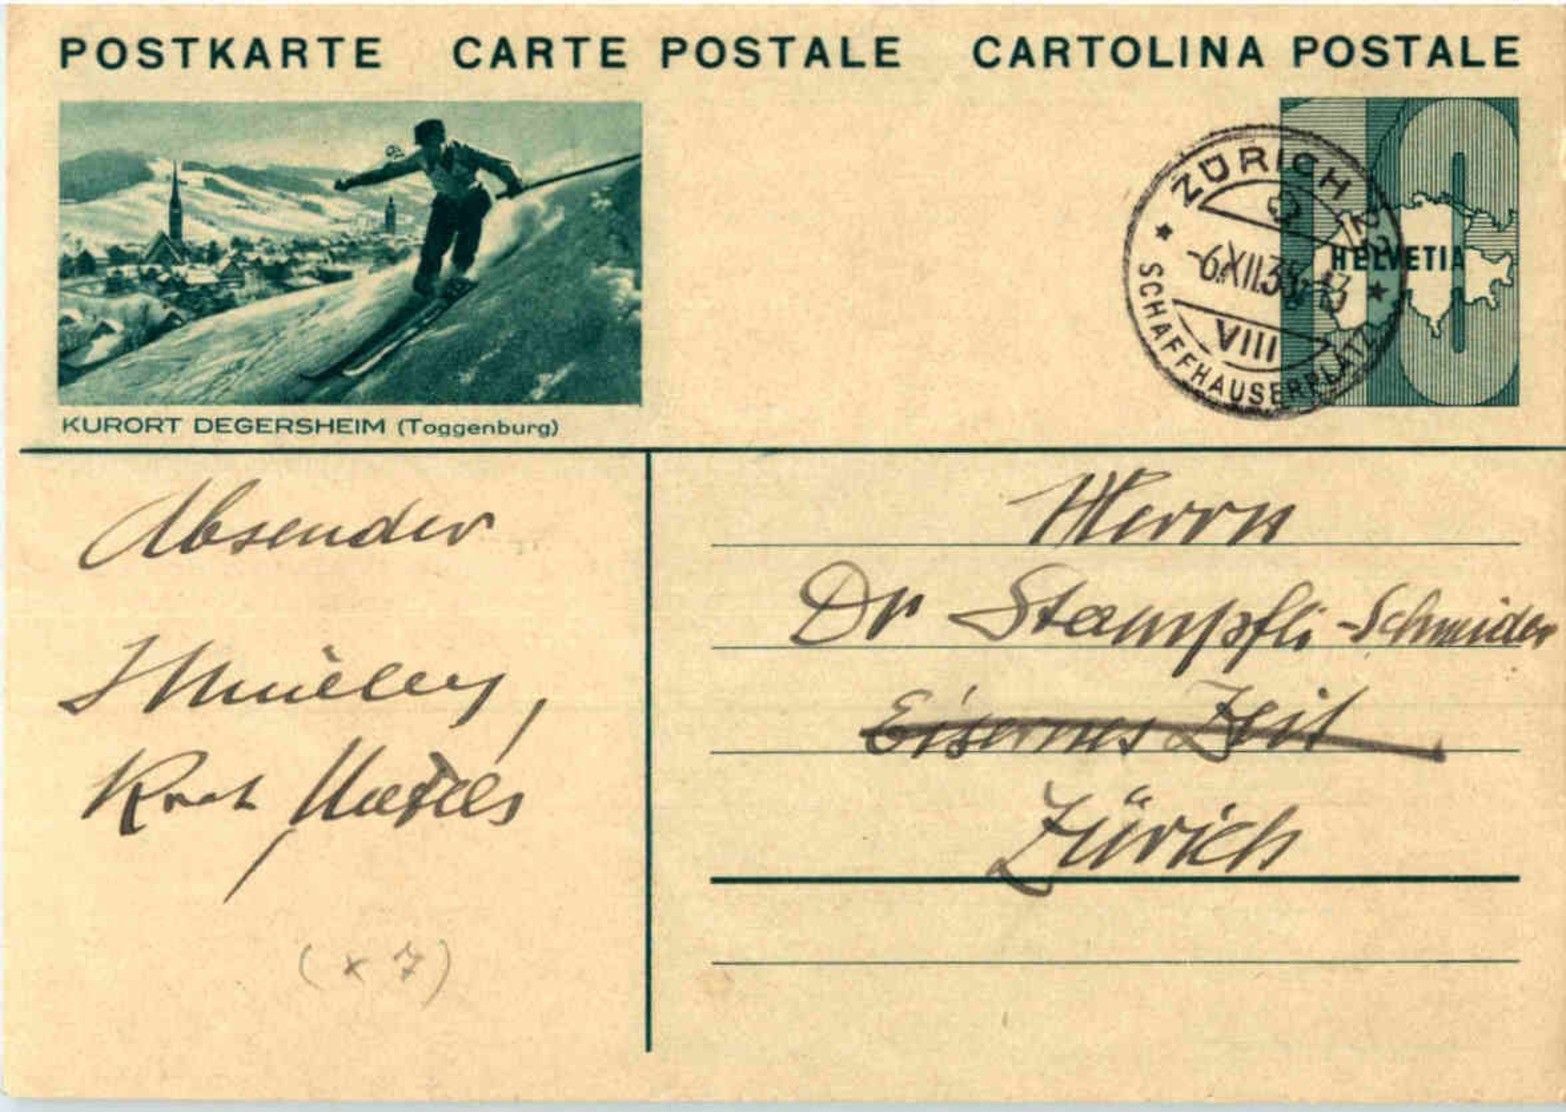 POSTKARTE CARTE POSTALE CARTOLINA POSTALE
KURORT DEGERSHEIM (Toggenburg)
ZÜRICH 22
-6.XII.3
VIII
SCHAFFHAUSERPLATZ
HELVETIA
Absender
(x 7)
Herrn
Dr Stampfli-Schneider
Eisernes Zeit
Zürich